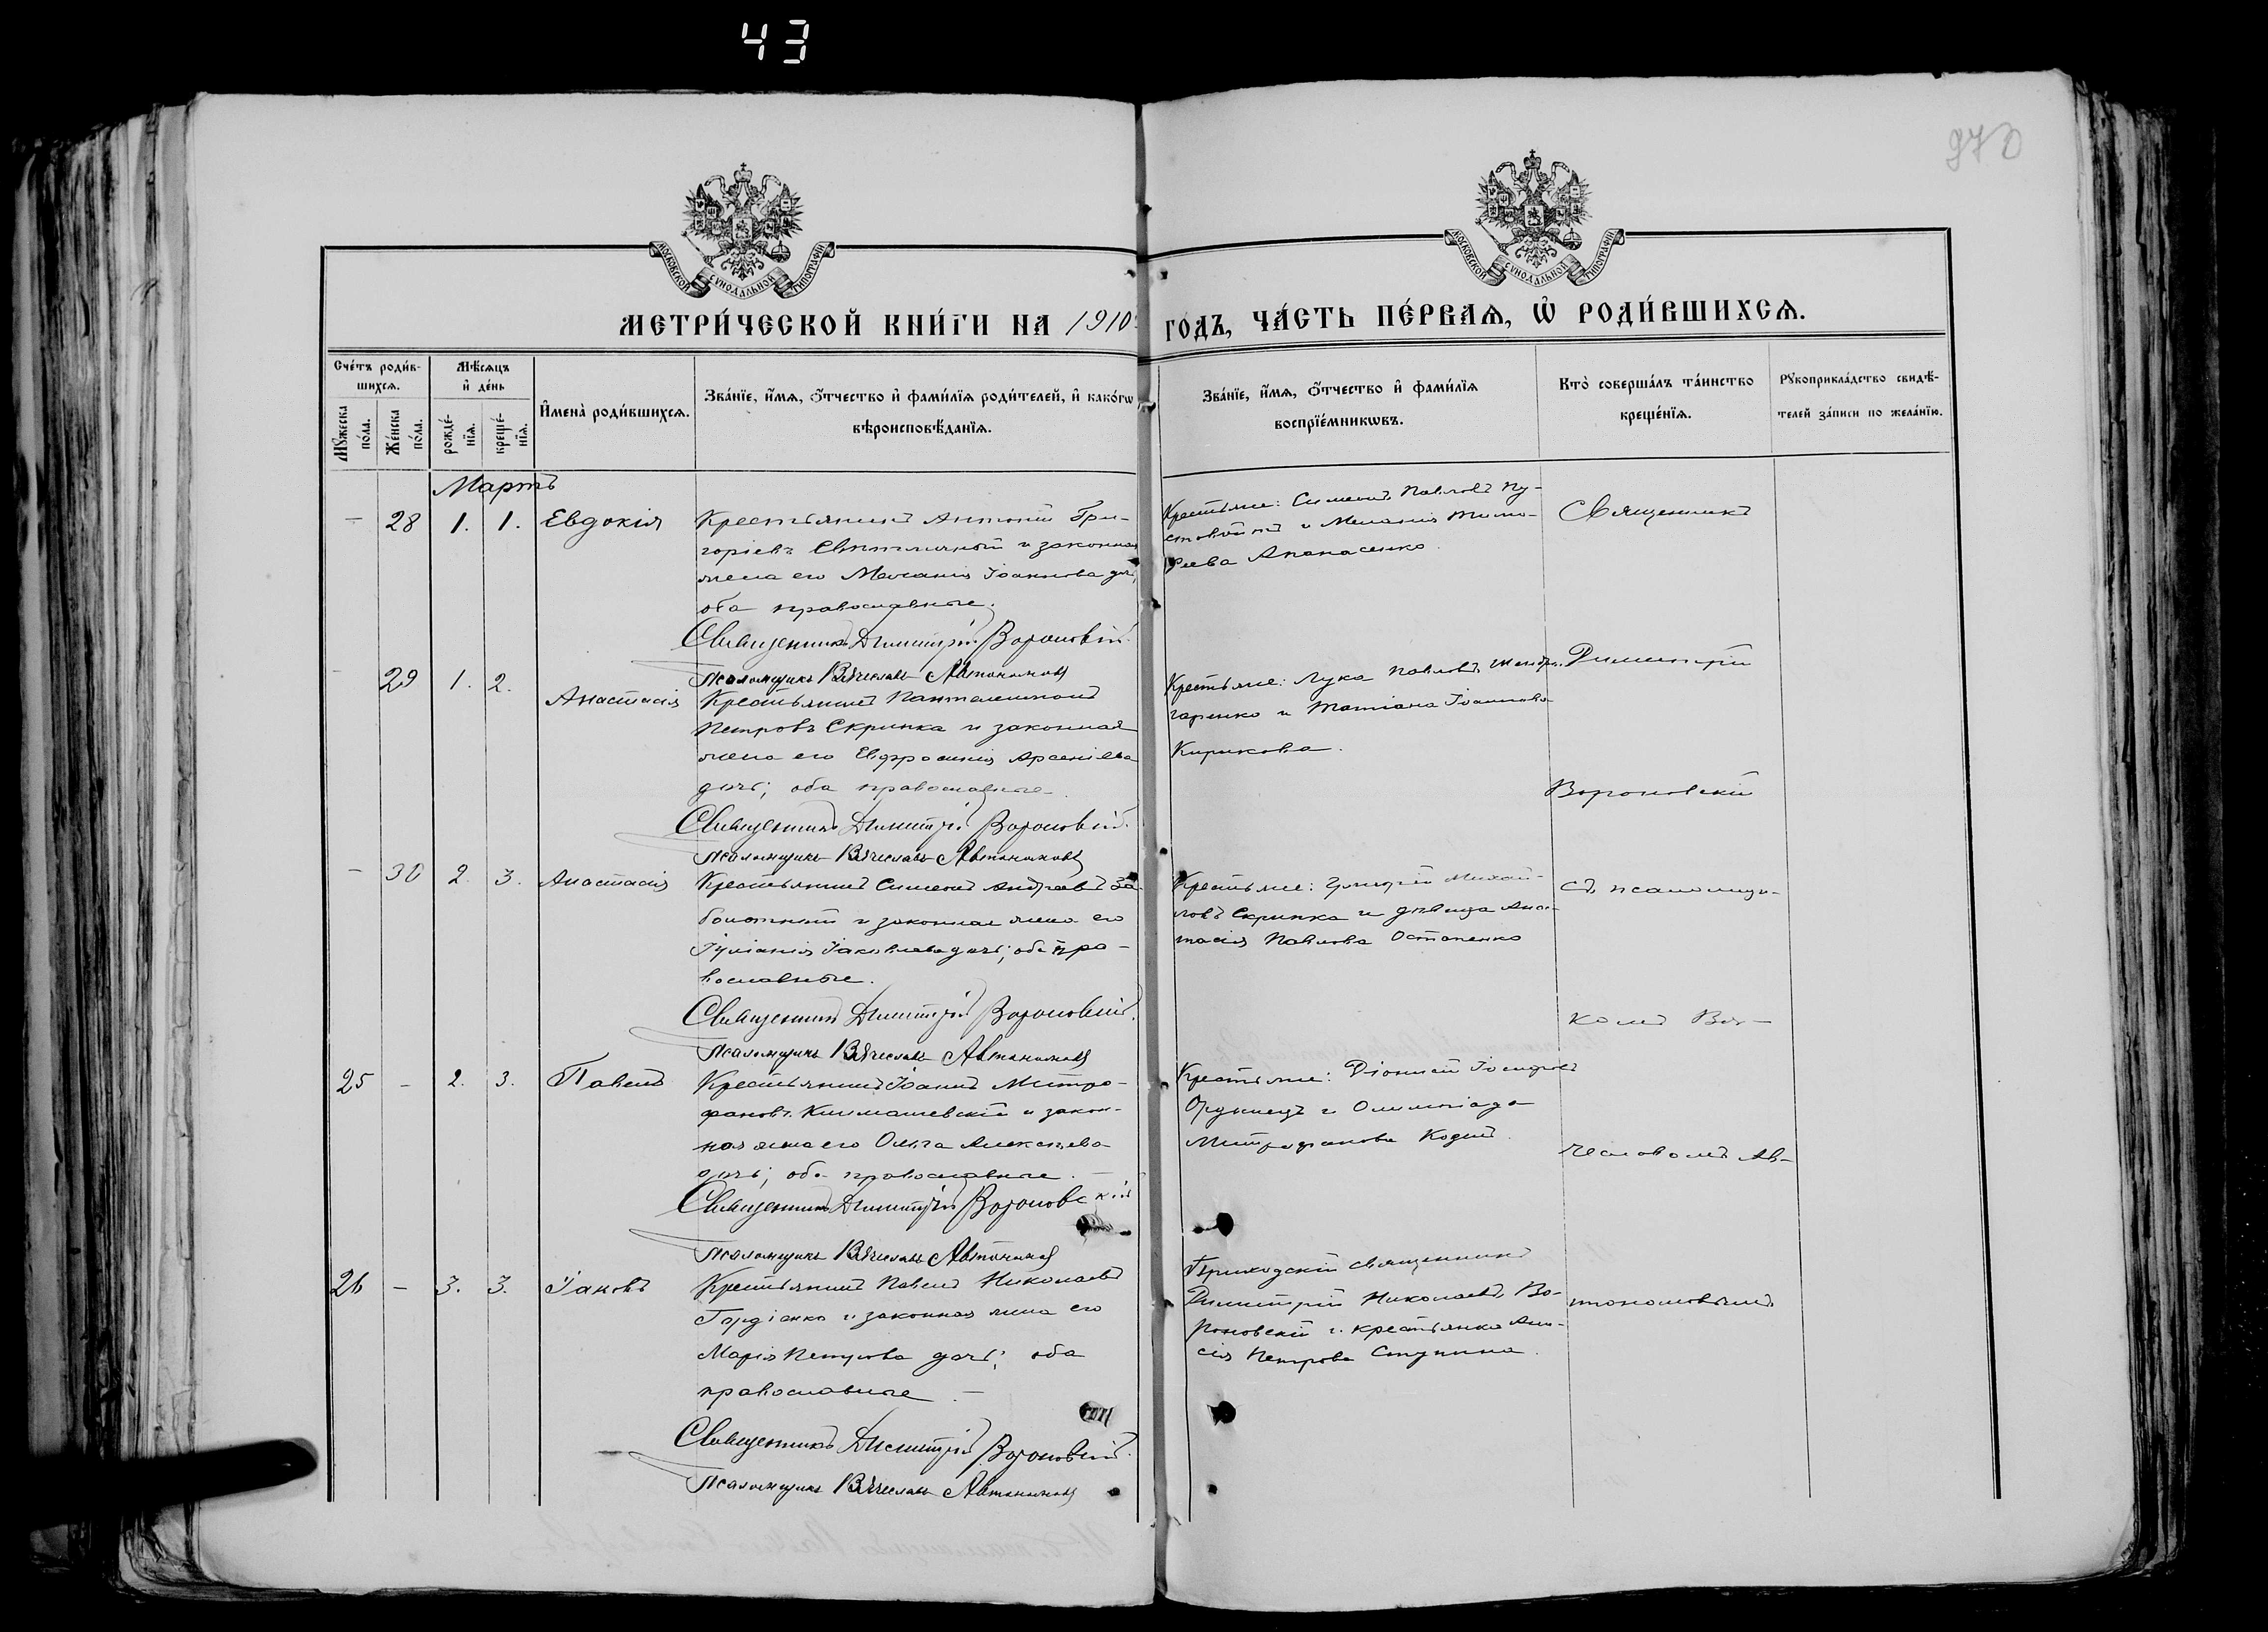 43
970
МОСКОВСКОЙ СѴНОДАЛЬНОЙ ТИПОГРАФІИ
МОСКОВСКОЙ СѴНОДАЛЬНОЙ ТИПОГРАФІИ
МЕТРИ́ЧЕСКОЙ КНИ́ГИ НА 1910 ГОДЪ, ЧА́СТЬ ПЕ́РВАѦ, Ѡ҆ РОДИ́ВШИХСѦ.
Сче́тъ роди́в-
шихсѧ.
Мꙋ́жеска по́ла.
Же́нска по́ла.
Мѣ́сѧцъ
и҆ де́нь
рожде́-
нїѧ.
креще́-
нїѧ.
И҆мена̀ роди́вшихсѧ.
Зва́нїе, и҆́мѧ, ѻ҆́тчество и҆ фами́лїѧ роди́телей, и҆ како́гѡ
вѣроисповѣ́данїѧ.
Зва́нїе, и҆́мѧ, ѻ҆́тчество и҆ фами́лїѧ
воспрїе́мникѡвъ.
Кто̀ соверша́лъ та́инство
креще́нїѧ.
Рꙋкоприкла́дство свидѣ́-
телей за́писи по жела́нїю.
Мартъ
— 28 1. 1. Евдокія
Крестьянинъ Антоній Гри-
горіевъ и законная
жена его Меланія Іоаннова дочь,
оба православные.
Священникъ Димитрій Вороновскій.
Псаломщикъ Вячеславъ Автономовъ
Крестьяне: Симеонъ Павловъ Пу-
стовойтъ и Меланія Тимо-
феева Апанасенко.
Священникъ
— 29 1. 2. Анастасія
Крестьянинъ Пантелеимонъ
Петровъ Скрипка и законная
жена его Евфросинія Арсеніева
дочь; оба православные.
Священникъ Димитрій Вороновскій.
Псаломщикъ Вячеславъ Автономовъ
Крестьяне: Лука Павловъ
гаренко и Татіана Іоаннова
Кирикова.
Димитрій
Вороновскій
— 30 2. 3. Анастасія
Крестьянинъ Симеонъ Андреевъ За-
болотный и законная жена его
Іуліанія Іаковлева дочь; оба пра-
вославные.
Священникъ Димитрій Вороновскій.
Псаломщикъ Вячеславъ Автономовъ
Крестьяне: Григорій Михаи-
ловъ Скрипка и дѣвица Анас-
тасія Павлова Остапенко
съ псаломщи-
комъ Вя-
25 — 2. 3. Павелъ
Крестьянинъ Іоаннъ Митро-
фановъ Климашевскій и закон-
ная жена его Ольга Алексѣева
дочь; оба православные. —
Священникъ Димитрій Вороновскій
Псаломщикъ Вячеславъ Автономовъ
Крестьяне: Діонисій Іосифовъ
и Олимпіада
Митрофанова
чеславомъ Ав-
26 — 3. 3. Іаковъ
Крестьянинъ Павелъ Николаевъ
Гордіенко и законная жена его
Марія Петрова дочь; оба
православные —
Священникъ Димитрій Вороновскій.
Псаломщикъ Вячеславъ Автономовъ
Приходскій священникъ
Димитрій Николаевъ Во-
роновскій и крестьянка
Петрова Ступина.
тономовымъ.